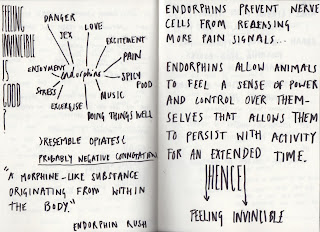 FEELING
INVINCIBLE
IS
GOOD?
DANGER
LOVE
SEX
EXCITEMENT
ENJOYMENT
endorphins
PAIN
SPICY
FOOD
STRESS
MUSIC
EXCERISE
DOING THINGS WELL
>RESEMBLE OPIATES<
PROBABLY NEGATIVE CONNOTATIONS
"A MORPHINE-LIKE SUBSTANCE
ORIGINATING FROM WITHIN
THE BODY."
ENDORPHIN RUSH
ENDORPHINS PREVENT NERVE
CELLS FROM
MORE PAIN SIGNALS...
ENDORPHINS ALLOW ANIMALS
TO FEEL A SENSE OF POWER
AND CONTROL OVER THEM-
SELVES THAT ALLOWS THEM
TO PERSIST WITH ACTIVITY
FOR AN EXTENDED TIME.
HENCE
FEELING INVINCIBLE